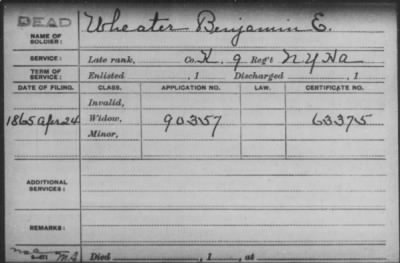 DEAD
NAME OF SOLDIER: Wheater Benjamin E.
SERVICE: Late rank, Co. K. 9 Reg't N Y Ha
TERM OF SERVICE: Enlisted , 1 Discharged , 1
DATE OF FILING. CLASS. APPLICATION NO. LAW. CERTIFICATE NO.
Invalid,
1865 Apr 24 Widow, 90357 63375
Minor,
ADDITIONAL SERVICES:
REMARKS:
Died , 1 , at